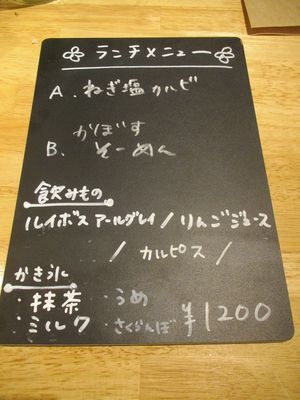 ランチメニュー
A. ねぎ塩カルビ
かぼす
B. そーめん
飲みもの
ルイボスアールグレイ/りんごジュース
/ カルピス /
かき氷
・抹茶 ・うめ
・ミルク ・さくらんぼ ¥1200